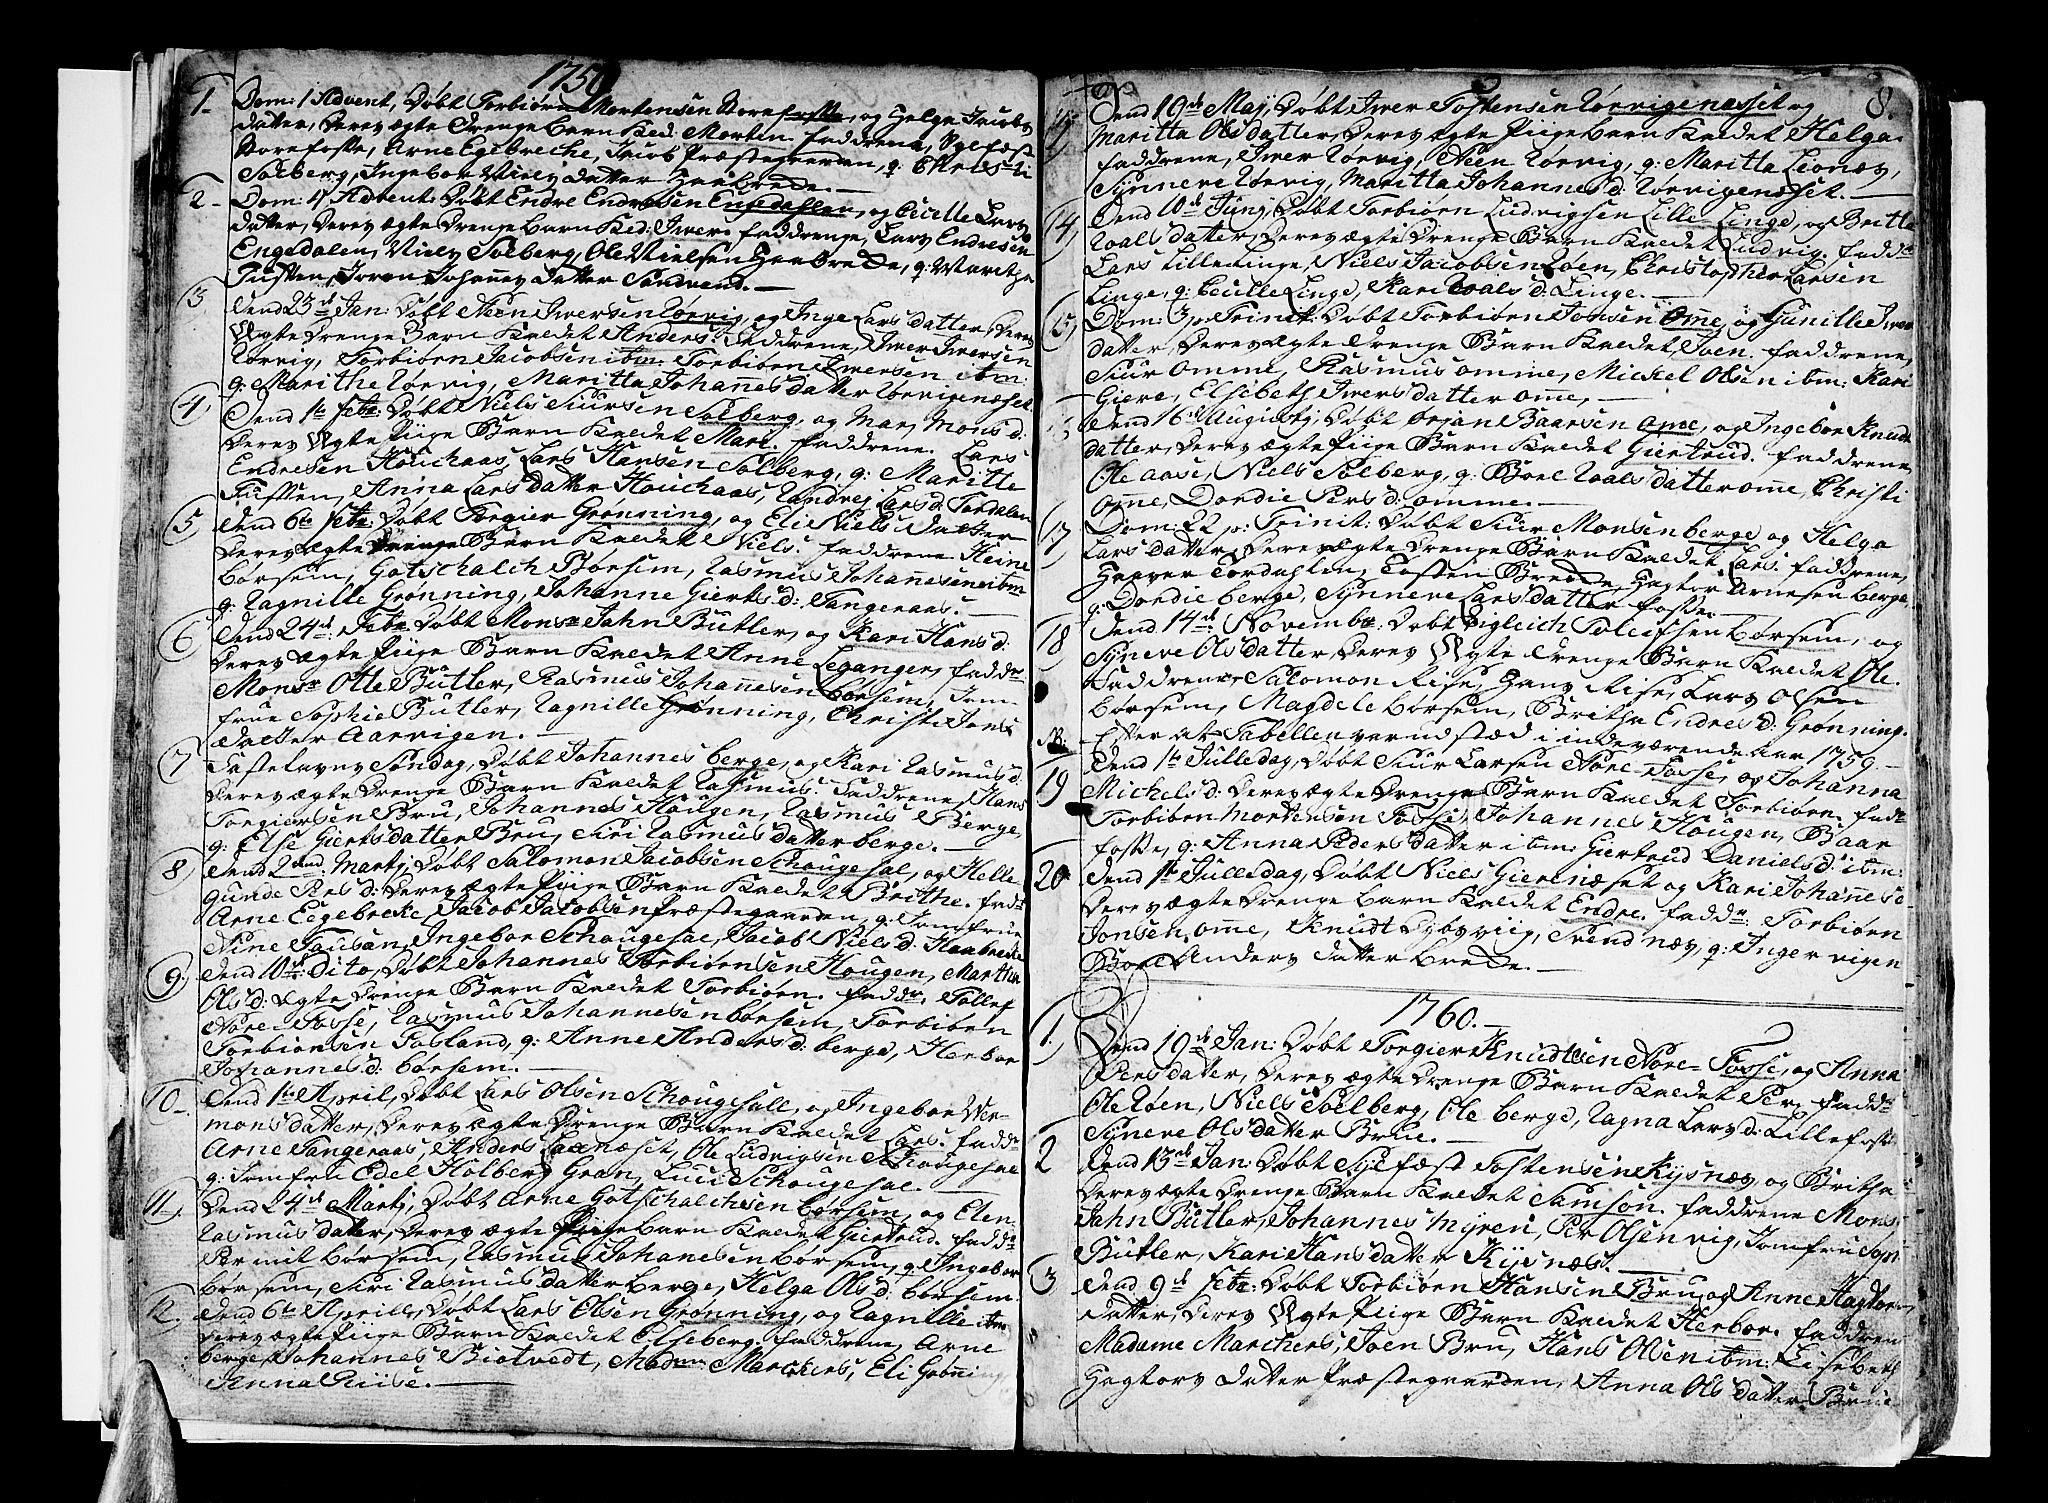 1759
1. Dom: 1 Advent, Døbt Torbiørn Mortensen Norefosse, og Helga Jacobs
datter, Deres ægte Drenge Barn Ked: Morten. Faddrene, Sylfæst
Norefosse, Arne Egebrecke, Jacob Præstegaarden, q: Christi
Solberg, Ingebor Niels datter Haabrede.
2. Dom: 4 Advent: Døbt Endre Endresen Engedahlen, og Cecille Lars
datter, Deres ægte Drenge Barn Ked: Iwer. Faddrene, Lars Endresen
Engedalen, Niels Solberg, Ole Nielsen Haabrede, q: Maritha
Tufsten, Joren Johannes datter Sandvend.
3 Dend 23de Jan: Døbt Neen Iwersen Rørvig, og Inge Lars datter, Deres
Ægte Drenge Barn Kaldet Anders. Faddrene, Iwer Iwersen
Rørvig, Torbiørn Jacobsen ibm: Torbiørn Iwersen ibm:
q: Marithe Rørvig, Maritta Johannes datter Rørvignæset
4 Dend 1te Febr: Døbt Niels Siursen Solberg, og Mari Mons d:
Deres Ægte Piige Barn Kaldet Mari. Faddrene. Lars
Endresen Houchaas, Lars Hansen Solberg, q: Maritte
Anna Lars datter Houchaas, Lars d: Tordalen
5 Dend 6te Febr: Døbt Torgier Grønning, og Eli Niels Datter
Deres ægte Drenge Barn Kaldet Niels. Faddrene. Heine
Børsem, Gotschalch Børsem, Rasmus Johannesen ibm
q: Ragnille Grønning, Johanne Gierts d: Tangeraas.
6 Dend 24de Febr: Døbt Monsr Jahn Butler, og Kari Hans d:
Deres ægte Piige Barn Kaldet Anne Leganger, Faddr
Monsr Otte Butler, Rasmus Johannesen Børsem, Jom-
frue Sophie Butler, Ragnille Grønning, Christi Jens
datter Aarvigen.
7 Fastelavns Søndag, Døbt Johannes Berge, og Kari Rasmus d:
Deres ægte Drenge Barn Kaldet Rasmus. Faddrene, Hans
Torgiersen Bru, Johannes Hougen, Rasmus Berge,
q: Else Gierts datter Bru, Siri Rasmus datter berge.
8 Dend 2den Martj, Døbt Salomon Jacobsen Schougesal, og Helle-
gunde Pers d: Deres ægte Piige Barn Kaldet Brithe. Faddr
Arne Egebrecke, Jacob Jacobsen Præstegaarden, q: Jomfrue
Nine Tausan, Ingebor Schougesal, Jacob Niels d: Haabrede
9 Dend 10de Dito, Døbt Johannes Torbiørnsen Hougen, Martha
Ols d: Ægte Drenge Barn Kaldet Torbiørn. Faddr, Tollef
Nore-Fosse, Rasmus Johannesen børsem, Torbiørn
Torbiørnsen Fosland, q: Anne Anders d: berge, Herbor
Johannes d: børsem.
10 Dend 1te April, Døbt Lars Olsen Schougesall, og Ingebor Ver-
mons datter, Deres ægte Drenge Barn Kaldet Lars. Faddr
Arne Tangeraas, Anders Laxnæset, Ole Ludvigsen Schougesal
q: Jomfru Edel Holberg Gran, Luci Schougesal.
11. Dend 24de Martj, Døbt Arne Gotschalchsen børsem, og Elen
Rasmus datter, Deres ægte Piige Barn Kaldet Giertrud. Faddr
Permil Børsem, Rasmus Johanesen børsem, q: Ingebor
børsem, Siri Rasmus datter berge, Helga Ols d: børsem.
12. Dend 6te Aprill, Døbt Lars Olsen Grønning, og Ragnille ibm
Deres ægte Piige Barn Kaldet Elseberg, Faddrene, Arne
berge, Johannes Biotvedt, Madm: Marchers, Eli Grønning
Anna Riise.
8.
Dend 19de Maij, Døbt Iwer Tostensen Rørvigenæsset og
Maritta Ols datter, Deres ægte Piige Barn Kaldet Helga.
Faddrene, Iwer Rørvig, Neen Rørvig, q: Maritta Lionæs,
Synneve Rørvig, Maritta Johannes d: Rørvigenæset.
14 Dend 10de Junj, Døbt Torbiørn Ludvigsen Lille-Linge, og Britte
Roals datter, Deres ægte Drenge Barn Kaldet Ludvig. Faddr
Lars Lillelinge, Niels Jacobsen Røen, Christopher Larsen
Linge, q: Cecille Linge, Kari Roals d: Linge.
15 Dom: 3 p: Trinit: Døbt Torbiørn Jonsen Omme, og Gunille Iwers
datter, Deres ægte Drenge Barn Kaldet Joen. Faddrene,
Siur Omme, Rasmus omme, Mickel Olsen ibm: Kari
Giere, Elsebeth Iwers datter ome,
Dend 16de Augustj, Døbt Ørjan Baarsen ome, og Ingebor Knuds
datter, Deres ægte Piige Barn Kaldet Giertrud. Faddrene,
Ole aase, Niels Solberg, q: Boel Roals datter ome, Christi
ome, Dordie Pers d: omme.
17 Dom: 22 p: Trinit: Døbt Siur Monsen berge og Helga
Lars datter, Deres ægte Drenge Barn Kaldet Lars. Faddrene,
Tordahlen, Tosten Brede, Hagtor Arnesen berge,
q: Dordie berge, Synneve Lars datter Fosse.
18 Dend 14de Novembr: Døbt Sigleich Toleifsen børsem, og
Syneve Ols datter, Deres Ægte Drenge Barn Kaldet Ole.
Faddrene, Salomon Rise, Hans Rise, Lars Olsen
børsem, Magdele børsem, Britha Endres d: Grønning.
NB: Efter at Tabellen var udstæd i indeværende Aar 1759.
19 Dend 1te Julledag, Døbt Siur Larsen Nore-Fosse, og Johanna
Michels d: Deres ægte Drenge Barn Kaldet Torbiørn. Fadr
Torbiørn Mortensen Fosse, Johannes Hougen, Baar
fosse, q: Anna Peders datter ibm: Giertrud Daniels d: ibm:
20 Dend 1te Julledag, Døbt Niels Gierenæset og Kari Johannes d
Deres ægte Drenge Barn Kaldet Endre. Faddr: Torbiørn
Jonsen ome, Knudt Dybsviig, Svend næs, q: Inger vigen
Boel Anders datter brede.
1760.
1 Dend 19de Jan: Døbt Torgier Knudtsen Nore-Fosse, og Anna
Pers datter, Deres ægte Drenge Barn Kaldet Per, Faddr
Ole Røen, Niels Soelberg, Ole berge, Ragna Lars d: Lillefosse
Syneve Ols datter Brue.
2 Dend 13de Jan: Døbt Sylfæst Tostensen Kysnæs, og Britha
Deres ægte Drenge Barn Kaldet Samson. Faddrene Monsr
Jahn Butler, Johannes Myren, Per Olsen vig, Jomfru Sophi
Butler, Kari Hans datter Kysnæs.
3 Dend 9de Febr: Døbt Torbiørn Hansen Bru, og Anne Hagtors
datter, Deres Ægte Piige Barn Kaldet Herbor. Faddren
Madame Marchers, Joen Bru, Hans Olsen ibm: Lisebeth
Hagtors datter Præstegaarden, Anna Ols datter Brue